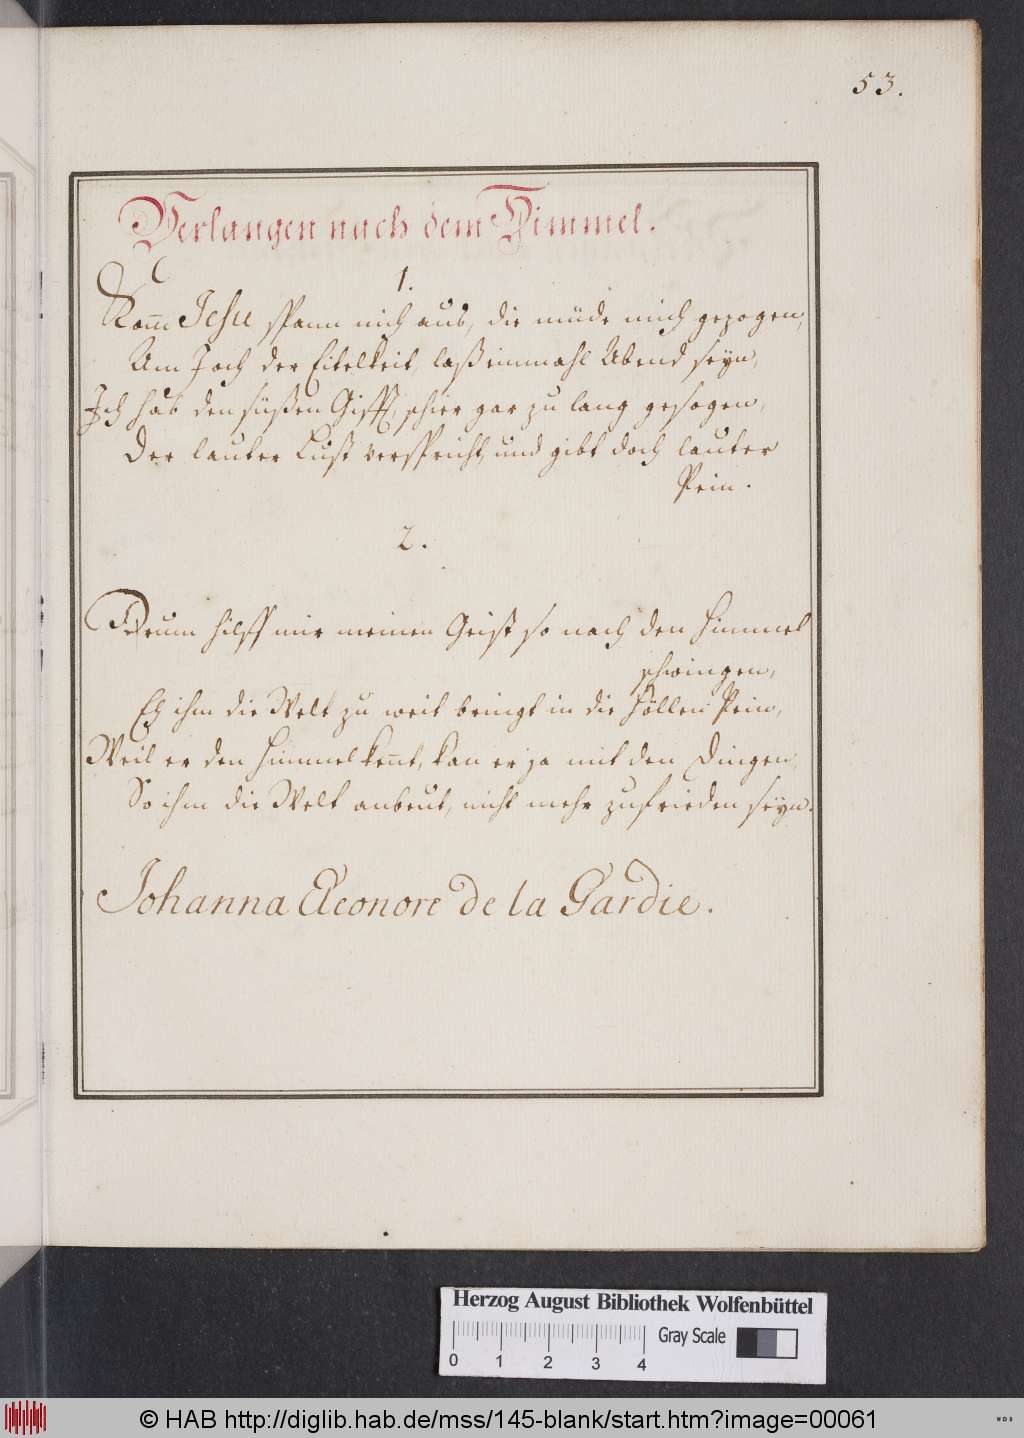 53.
Verlangen nach dem Himmel.
1.
Kom̅ Jesu spann mich aus, die müde mich gezogen,
Am Joch der Eitelkeit, laß einmahl Abend seyn,
Ich hab den süßen Gifft, schier gar zu lang gesogen,
Der lauter Lust verspricht, und gibt doch lauter
Pein.
2.
Drum hilff mir meinen Geist so nach den Himmel
schwingen,
Eh ihm die Welt zu weit bringt in die Höllen Pein,
Weil er den Himmel ken̅t, kan er ja mit den Dingen,
So ihm die Welt anbeut, nicht mehr zufrieden seyn.
Johanna Eleonore De la Gardie.
Herzog August Bibliothek Wolfenbüttel
Gray Scale
0 1 2 3 4
© HAB http://diglib.hab.de/mss/145-blank/start.htm?image=00061